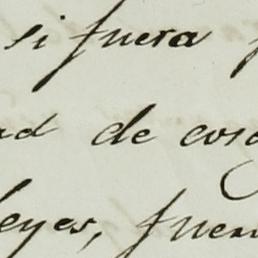 si fuera
ad de cosa
leyes, fuera